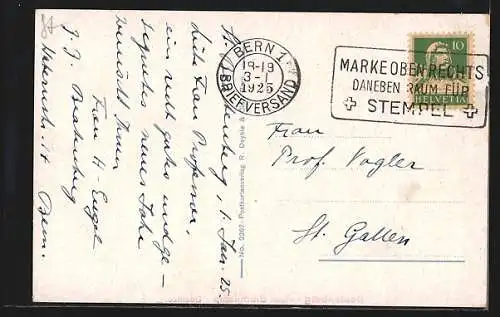 BERN 1
18-19
3-I
1925
BRIEFVERSAND
MARKE OBEN RECHTS
DANEBEN RAUM FÜR
STEMPEL
10
HELVETIA
1. Jan. 25.
Liebe Frau Professor,
ein recht gutes und ge-
segnetes neues Jahr
wünscht Ihnen
Frau H. Engel
Bern.
No. 9267 Postkartenverlag R. Deyhle
Frau
Prof. Vogler
St. Gallen